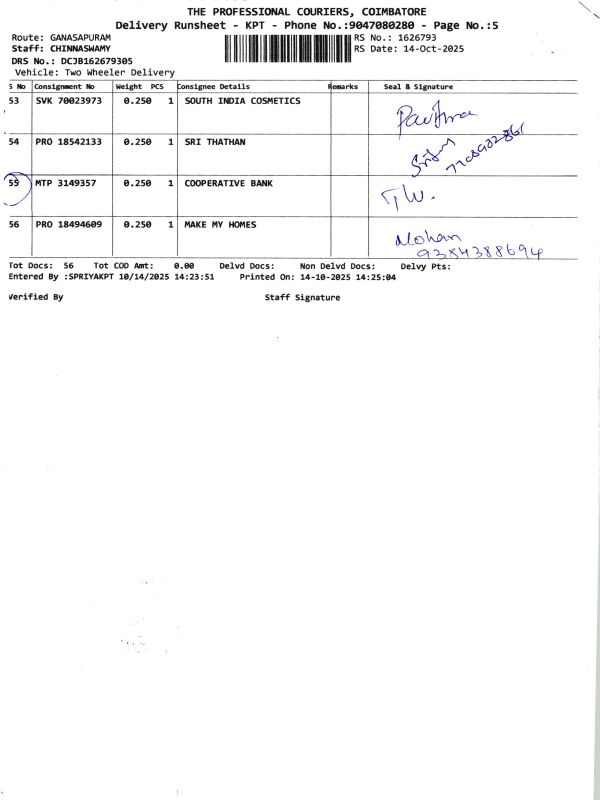 THE PROFESSIONAL COURIERS, COIMBATORE
Delivery Runsheet - KPT - Phone No.:9047080280 - Page No.:5
Route: GANASAPURAM RS No.: 1626793
Staff: CHINNASWAMY RS Date: 14-Oct-2025
DRS No.: DCJB162679305
Vehicle: Two Wheeler Delivery
S No Consignment No Weight PCS Consignee Details Remarks Seal & Signature
53 SVK 70023973 0.250 1 SOUTH INDIA COSMETICS
54 PRO 18542133 0.250 1 SRI THATHAN
55 MTP 3149357 0.250 1 COOPERATIVE BANK
56 PRO 18494609 0.250 1 MAKE MY HOMES Mohan
9384388694
Tot Docs: 56 Tot COD Amt: 0.00 Delvd Docs: Non Delvd Docs: Delvy Pts:
Entered By :SPRIYAKPT 10/14/2025 14:23:51 Printed On: 14-10-2025 14:25:04
Verified By Staff Signature